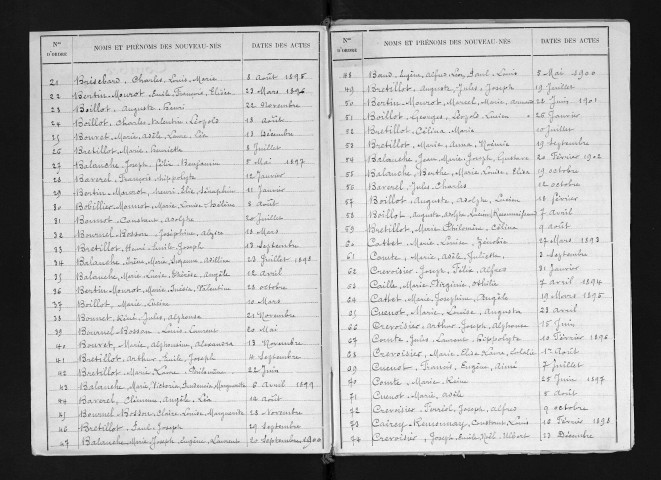 Nos D'ORDRE NOMS ET PRÉNOMS DES NOUVEAU-NÉS DATES DES ACTES
21 Brischard, Charles, Louis, Marie 8 Août 1895
22 Bertin-Mourot, Emile, François, Elisée 23 Mars 1896
23 Boillot, Auguste, Henri 22 Novembre
24 Boillot, Charles, Valentin, Léopold 18 Août
25 Bouvet, Marie, Adèle, Léa 17 Décembre
26 Bretillot, Marie, Henriette 8 Juillet
27 Balanche, Joseph, Félix, Benjamin 5 Mai 1897
28 Baverel, François, Hippolyte 12 Janvier
29 Bertin-Mourot, Henri, Elie, Séraphin 11 Janvier
30 Bobillier-Monnot, Marie, Louise, Hélène 8 Août
31 Bonnot, Constant, Adolphe 20 Juillet
32 Bournel-Bosson, Joséphine, Alzire 18 Mars
33 Bretillot, Henri, Emile, Joseph 13 Septembre
34 Balanche, Suzanne, Adeline 23 Juillet 1898
35 Balanche, Marie, Lucie, Angèle 12 Avril
36 Bertin-Mourot, Marie, Valentine 23 Octobre
37 Boillot, Marie 10 Mars
38 Bonnet, René, Jules, Alphonse 21 Novembre
39 Bournel-Bosson, Louis, Laurent 20 Mai
40 Bouvet, Marie, Alphonsine, Alexandra 13 Novembre
41 Bretillot, Arthur, Emile, Joseph 4 Septembre
42 Bretillot, Marie, Philomène 22 Juin
43 Balanche, Marie, Victoria, Marguerite 6 Avril 1899
44 Baverel, Clémence, Angèle, Léa 14 Août
45 Bournel-Bosson, Claire, Louise, Marguerite 23 Novembre
46 Bretillot, Paul, Joseph 29 Septembre
47 Balanche, Marie, Joseph, Eugène, Laurent 20 Septembre 1900
Nos D'ORDRE NOMS ET PRÉNOMS DES NOUVEAU-NÉS DATES DES ACTES
48 Baud, Eugène, Alfred, Léon, Paul, Louis 8 Mai 1900
49 Bretillot, Auguste, Jules, Joseph 19 Juillet
50 Bertin-Mourot, Marcel, Marie, Armand 22 Juin 1901
51 Boillot, Georges, Léopold, Lucien 26 Janvier
52 Bretillot, Célina, Marie 10 Juillet
53 Bretillot, Marie, Anna, Noémie 19 Septembre
54 Balanche, Jean, Marie, Joseph, Gustave 20 Février 1902
55 Balanche, Berthe, Marie, Louise, Elisa 19 Octobre
56 Baverel, Jules, Charles 12 Octobre
57 Boillot, Auguste, Adolphe, Lucien 18 Février
58 Boillot, Auguste, Adolphe, Lucien 7 Avril
59 Bretillot, Marie, Philomène, Célina 9 Août
60 Cattet, Marie, Louise, Zénobie 27 Mars 1893
61 Comte, Marie, Adèle, Juliette 2 Septembre
62 Crevoisier, Joseph, Félix, Alfred 31 Janvier
63 Caille, Marie, Virginie, Othilie 7 Avril 1894
64 Cattet, Marie, Joséphine, Angèle 19 Mars 1895
65 Cuenot, Marie, Louise, Augusta 23 Avril
66 Crevoisier, Arthur, Joseph, Alphonse 15 Juin
67 Comte, Jules, Laurent, Hippolyte 10 Février 1896
68 Crevoisier, Marie, Elise, Laure, Eulalie 17 Août
69 Cuenot, Francis, Eugène, Aimé 7 Juillet
70 Comte, Marie 25 Juin 1897
71 Cuenot, Marie, Adèle 5 Août
72 Crevoisier, Ferréol, Joseph, Alfred 9 Octobre
73 Cairey-Remonnay, Constant 18 Février 1898
74 Crevoisier, Joseph, Emile, Noël, Albert 23 Décembre